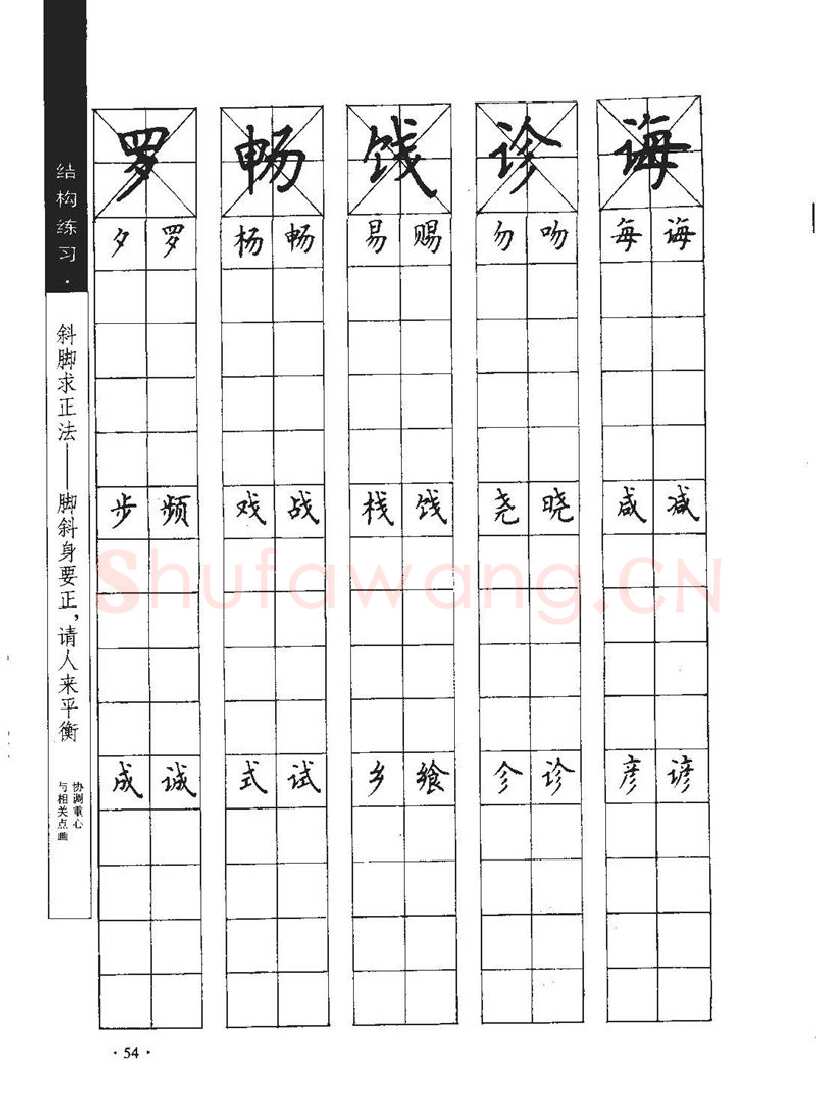 结构练习·
斜脚求正法——脚斜身要正,请人来平衡
协调重心
与相关点画
罗 畅 饯 诊 诲
夕 罗 杨 畅 易 赐 勿 吻 每 诲
步 频 戏 战 栈 饯 尧 晓 咸 减
成 诚 式 试 乡 飨 㐱 诊 彦 谚
Shufawang.CN
·54·